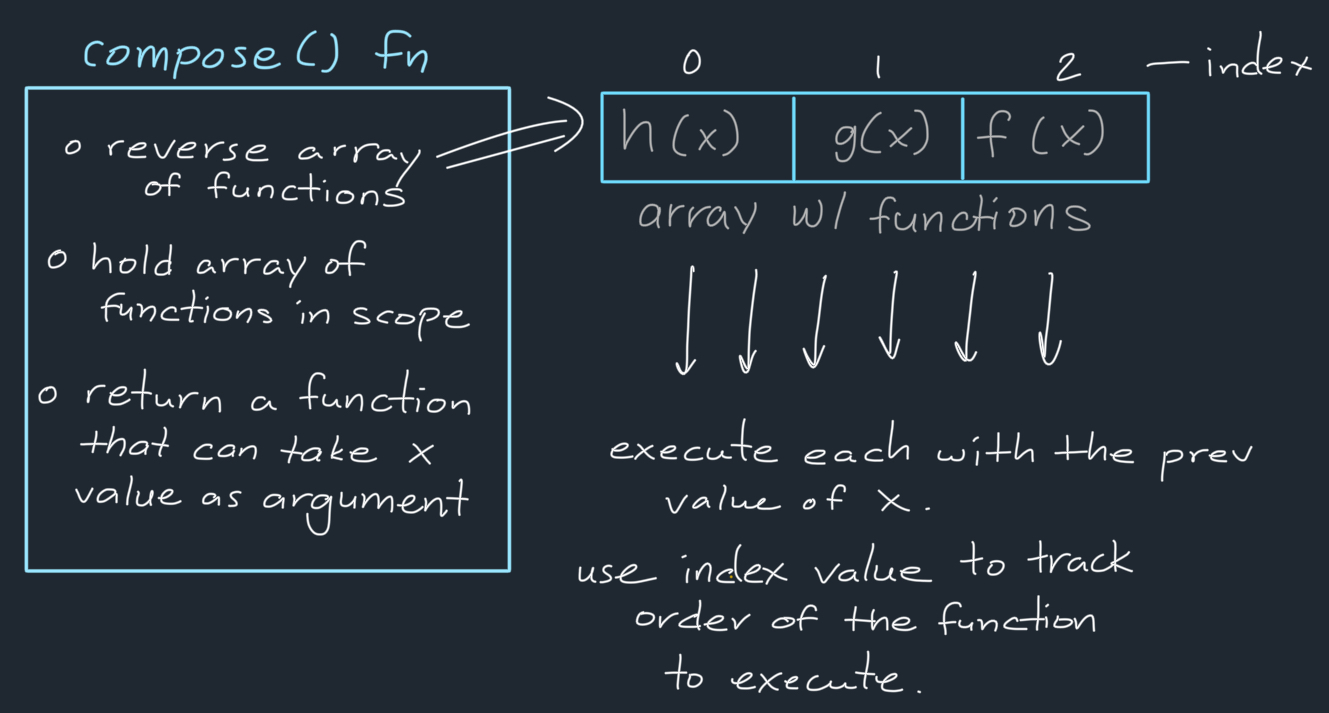 compose() fn
o reverse array
of functions
o hold array of
functions in scope
o return a function
that can take x
value as argument
0 1 2 — index
h(x) g(x) f(x)
array w/ functions
execute each with the prev
value of x.
use index value to track
order of the function
to execute.